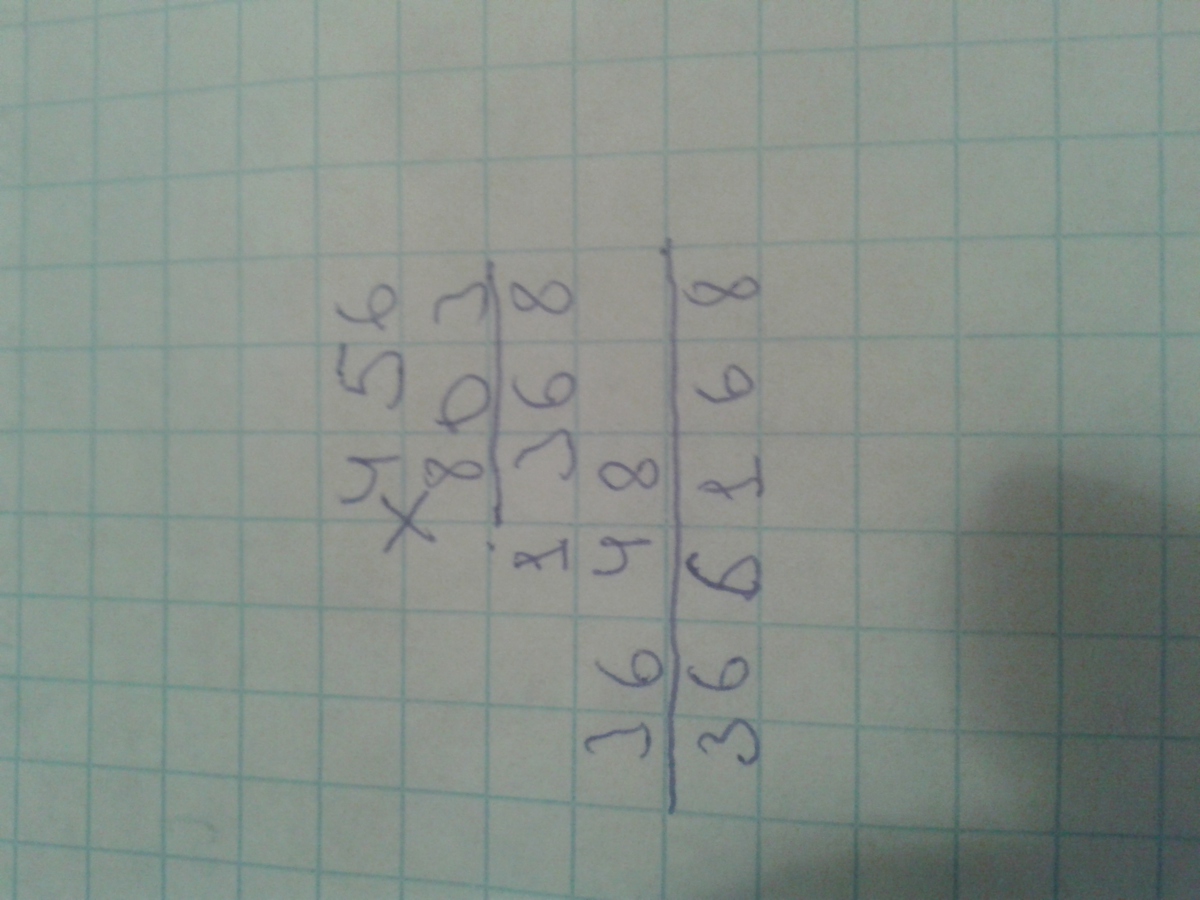 456
× 803
1368
3648
366168